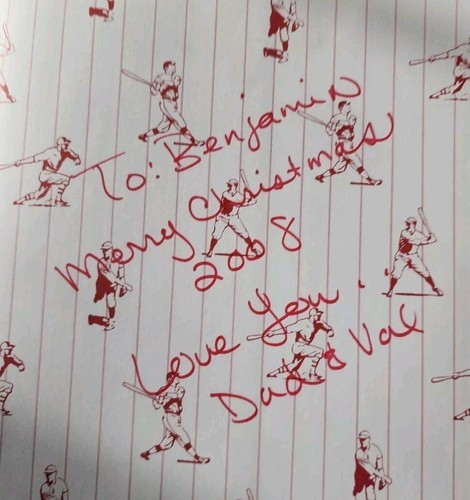 To: Benjamin
Merry Christmas
2008
Love You..
Dad & Val